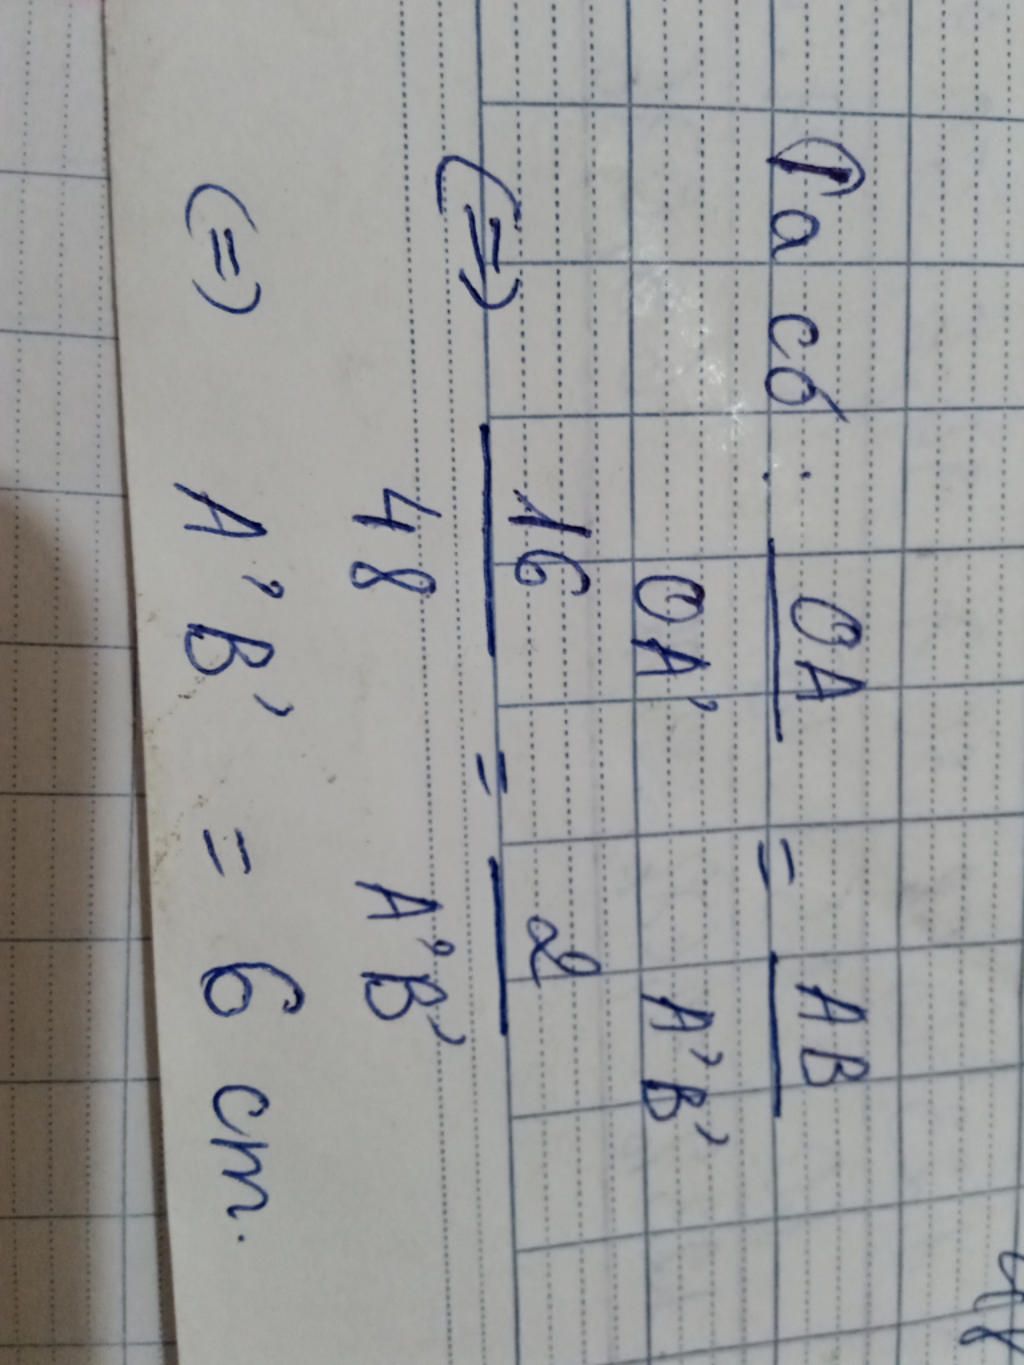 Ta có: OA/OA' = AB/A'B'
(=) 16/48 = 2/A'B'
(=) A'B' = 6 cm.